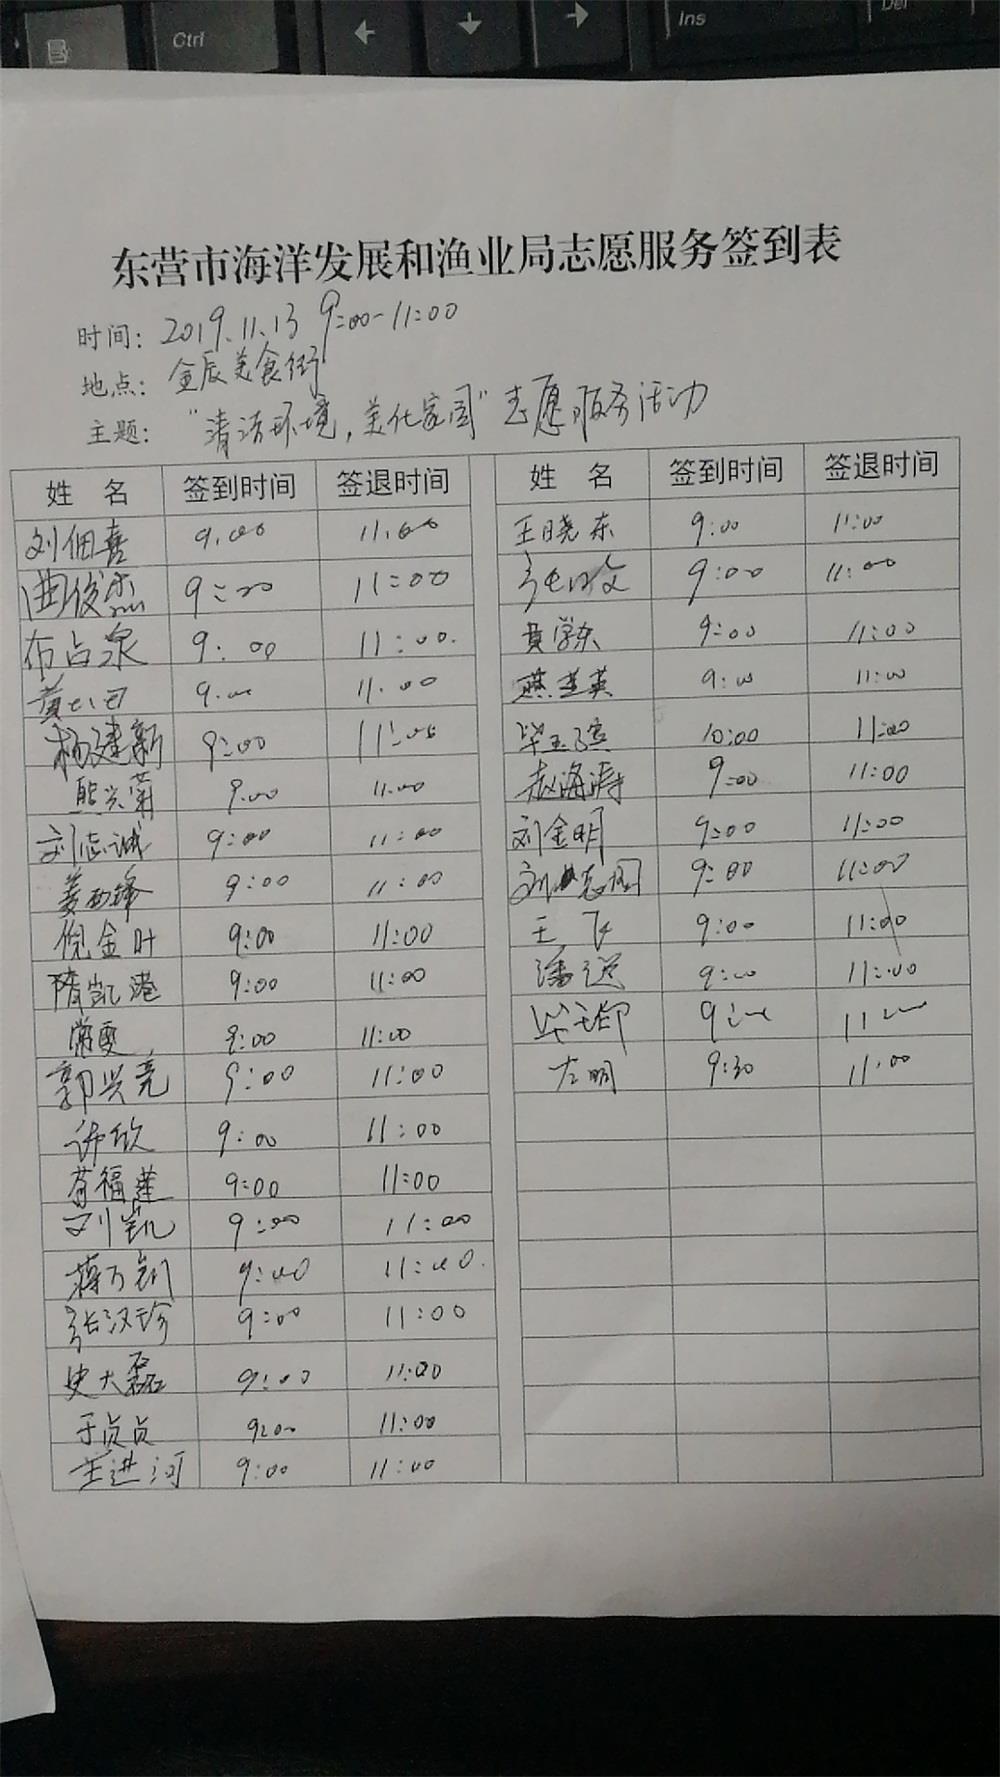 Ctrl
←
↓
→
Ins
Del
东营市海洋发展和渔业局志愿服务签到表
时间: 2019.11.13 9:00-11:00
地点: 金辰美食街
主题: "清洁环境,美化家园"志愿服务活动
姓 名 签到时间 签退时间 姓 名 签到时间 签退时间
刘佃喜 9:00 11:00 王晓东 9:00 11:00
曲俊杰 9:00 11:00 9:00 11:00
布占泉 9:00 11:00. 黄学东 9:00 11:00
黄 9:00 11:00 燕兰英 9:00 11:00
杨建新 9:00 11:00 毕玉 10:00 11:00
熊兴菊 9:00 11:00 赵海涛 9:00 11:00
刘志诚 9:00 11:00 刘金明 9:00 11:00
姜西锋 9:00 11:00 刘志国 9:00 11:00
倪金叶 9:00 11:00 王飞 9:00 11:00
隋凯港 9:00 11:00 潘 9:00 11:00
常雯 9:00 11:00 毕 9:00 11:00
郭兴亮 9:00 11:00 左明 9:30 11:00
许欣 9:00 11:00
福莲 9:00 11:00
刘凯 9:00 11:00
蒋万钊 9:00 11:00.
张汉珍 9:00 11:00
史大磊 9:00 11:00
于贞贞 9:00 11:00
王进河 9:00 11:00